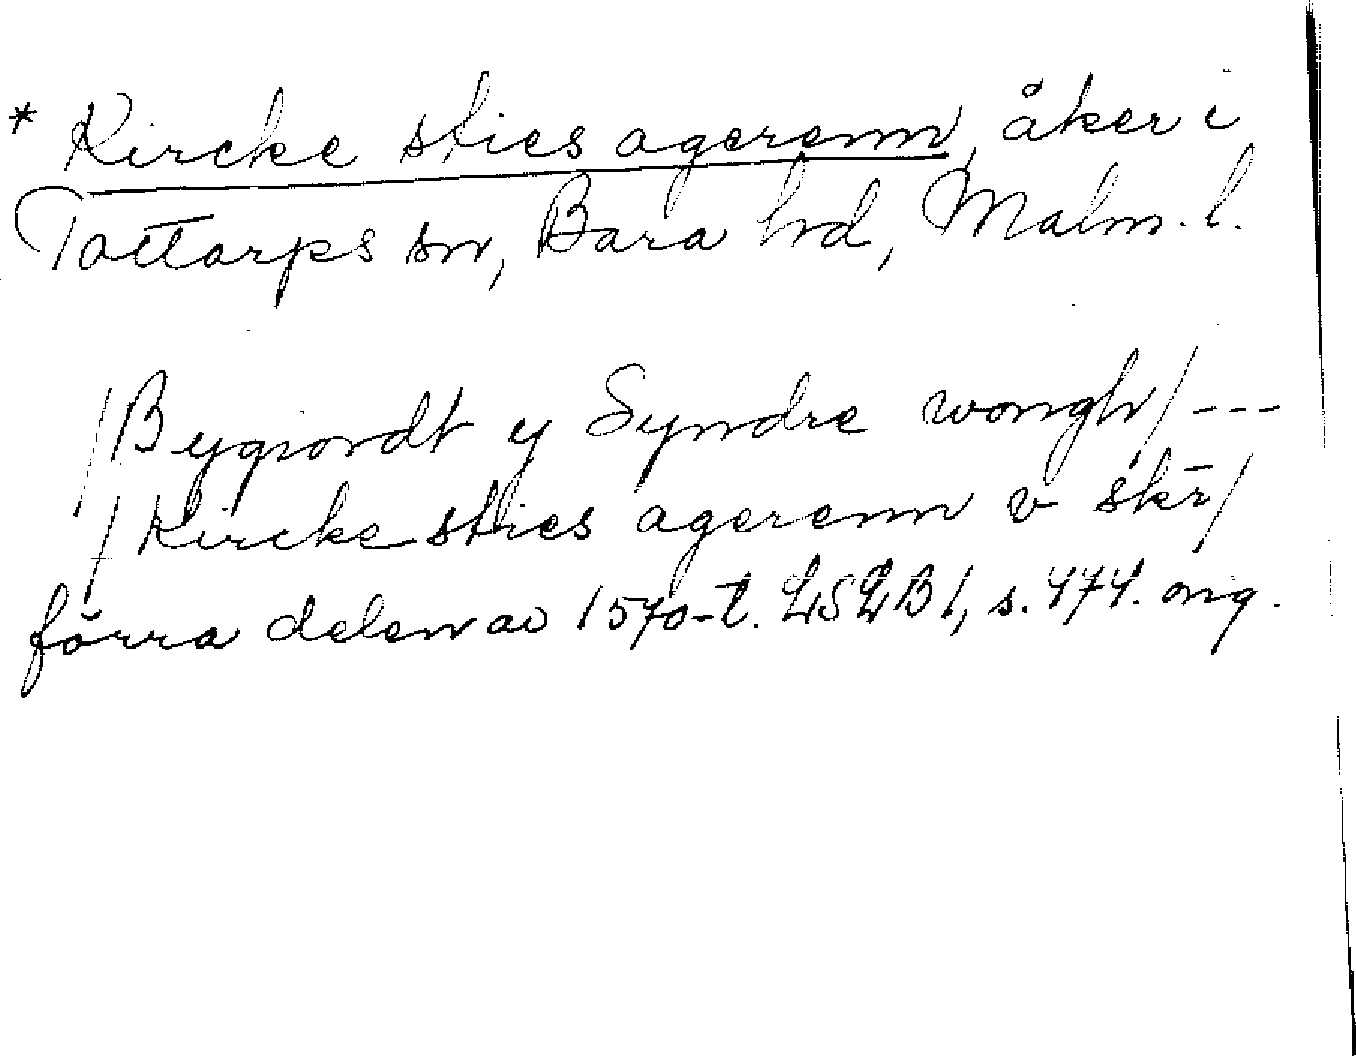 * Kircke sties agerenn, åker i
Tottarps sn, Bara hd, Malm. l.
/Bygrondt y Syndre wongh/ ---
/Kircke sties agerenn v skr/
förra delen av 1570-t. LSLB I, s. 474. orig.